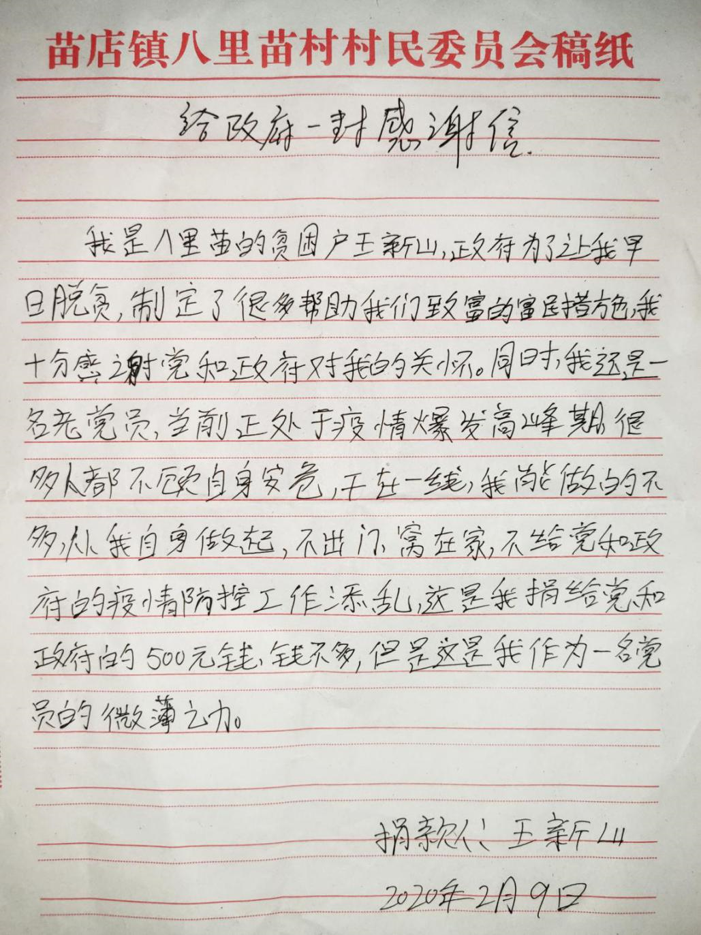 苗店镇八里苗村村民委员会稿纸
给政府一封感谢信.
我是八里苗的贫困户王新山,政府为了让我早
日脱贫,制定了很多帮助我们致富的富民措施,我
十分感谢党和政府对我的关怀。同时,我还是一
名老党员,当前正处于疫情爆发高峰期很
多人都不顾自身安危,干在一线,我能做的不
多,从我自身做起,不出门、窝在家,不给党和政
府的疫情防控工作添乱,这是我捐给党和
政府的500元钱、钱不多,但是这是我作为一名党
员的微薄之力。
捐款人:王新山
2020年2月9日